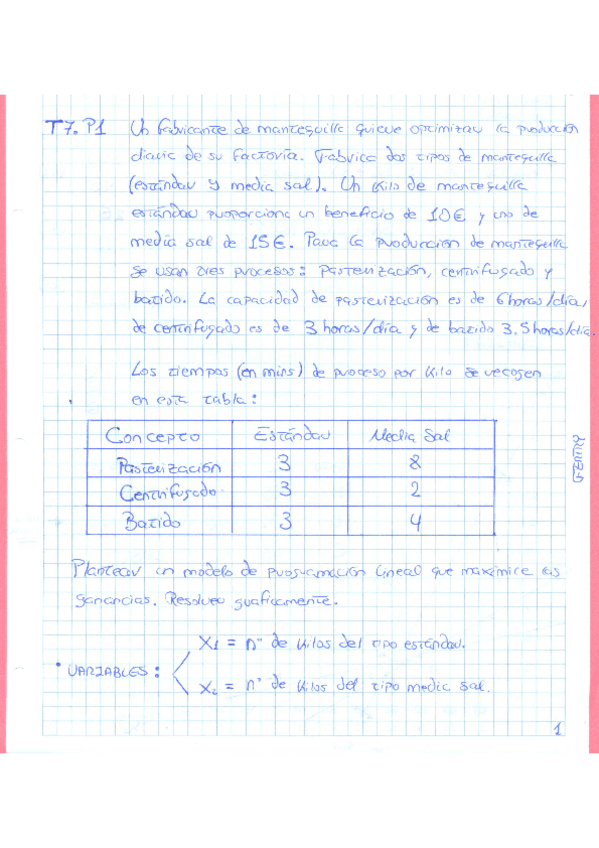 T7.P1 Un fabricante de mantequilla quiere optimizar la producción
diaria de su factoría. Fabrica dos tipos de mantequilla
(estándar y media sal). Un kilo de mantequilla
estándar proporciona un beneficio de 10€ y uno de
media sal de 15€. Para la producción de mantequilla
se usan tres procesos: pasterización, centrifugado y
batido. La capacidad de pasterización es de 6 horas/día,
de centrifugado es de 3 horas/día y de batido 3.5 horas/día.
Los tiempos (en mins) de proceso por kilo se recogen
en esta tabla:
Concepto Estándar Media Sal
Pasterización 3 8
Centrifugado 3 2
Batido 3 4
Plantear un modelo de programación lineal que maximice las
ganancias. Resolver graficamente.
• VARIABLES: X1 = nº de kilos del tipo estándar.
X2 = nº de kilos del tipo media sal.
1